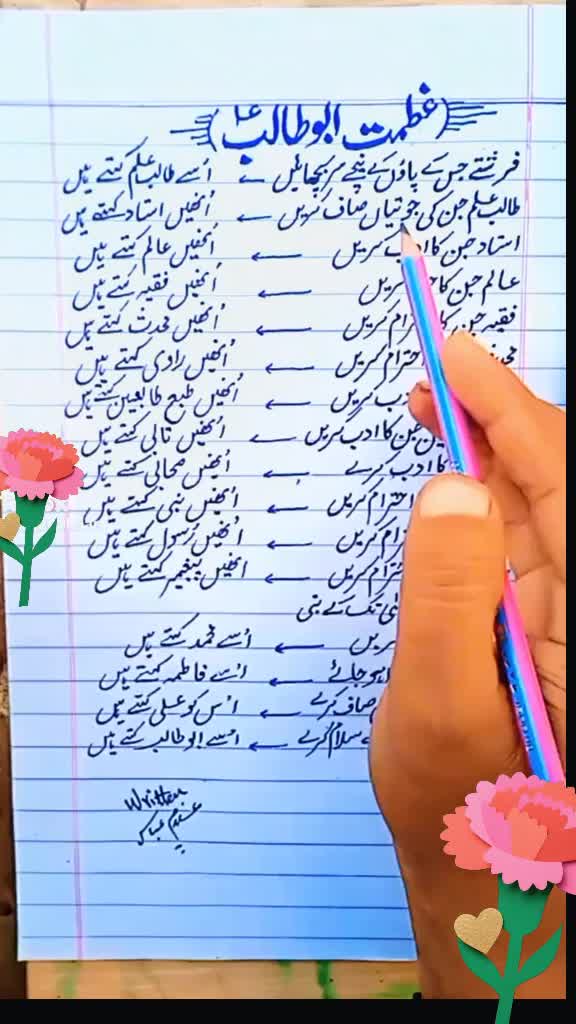 عظمت ابو طالب ؑ
فرشتے جس کے پاؤں کے نیچے پر بچھائیں ← اُسے طالب علم کہتے ہیں
طالب علم جن کی جوتیاں صاف کریں ← اُنھیں استاد کہتے ہیں
استاد جن کا ادب کریں ← اُنھیں عالم کہتے ہیں
عالم جن کا کریں ← اُنھیں فقیہ کہتے ہیں
فقیہ جن کا احترام کریں ← اُنھیں محدث کہتے ہیں
احترام کریں ← اُنھیں راوی کہتے ہیں
ادب کریں ← اُنھیں طبع طابعین کہتے ہیں
جن کا ادب کریں ← اُنھیں تابی کہتے ہیں
کا ادب کرے ← اُنھیں صحابی کہتے ہیں
احترام کریں ← اُنھیں نبی کہتے ہیں
احترام کریں ← انھیں رُسول کہتے ہیں
احترام کریں ← انھیں پیغمبر کہتے ہیں
تک کے نبی
کریں ← اُسے محمد کہتے ہیں
ہو جائے ← اُسے فاطمہ کہتے ہیں
صاف کرے ← اُس کو علی کہتے ہیں
سلام کرے ← اُسے ابو طالب کہتے ہیں
Written
عباس